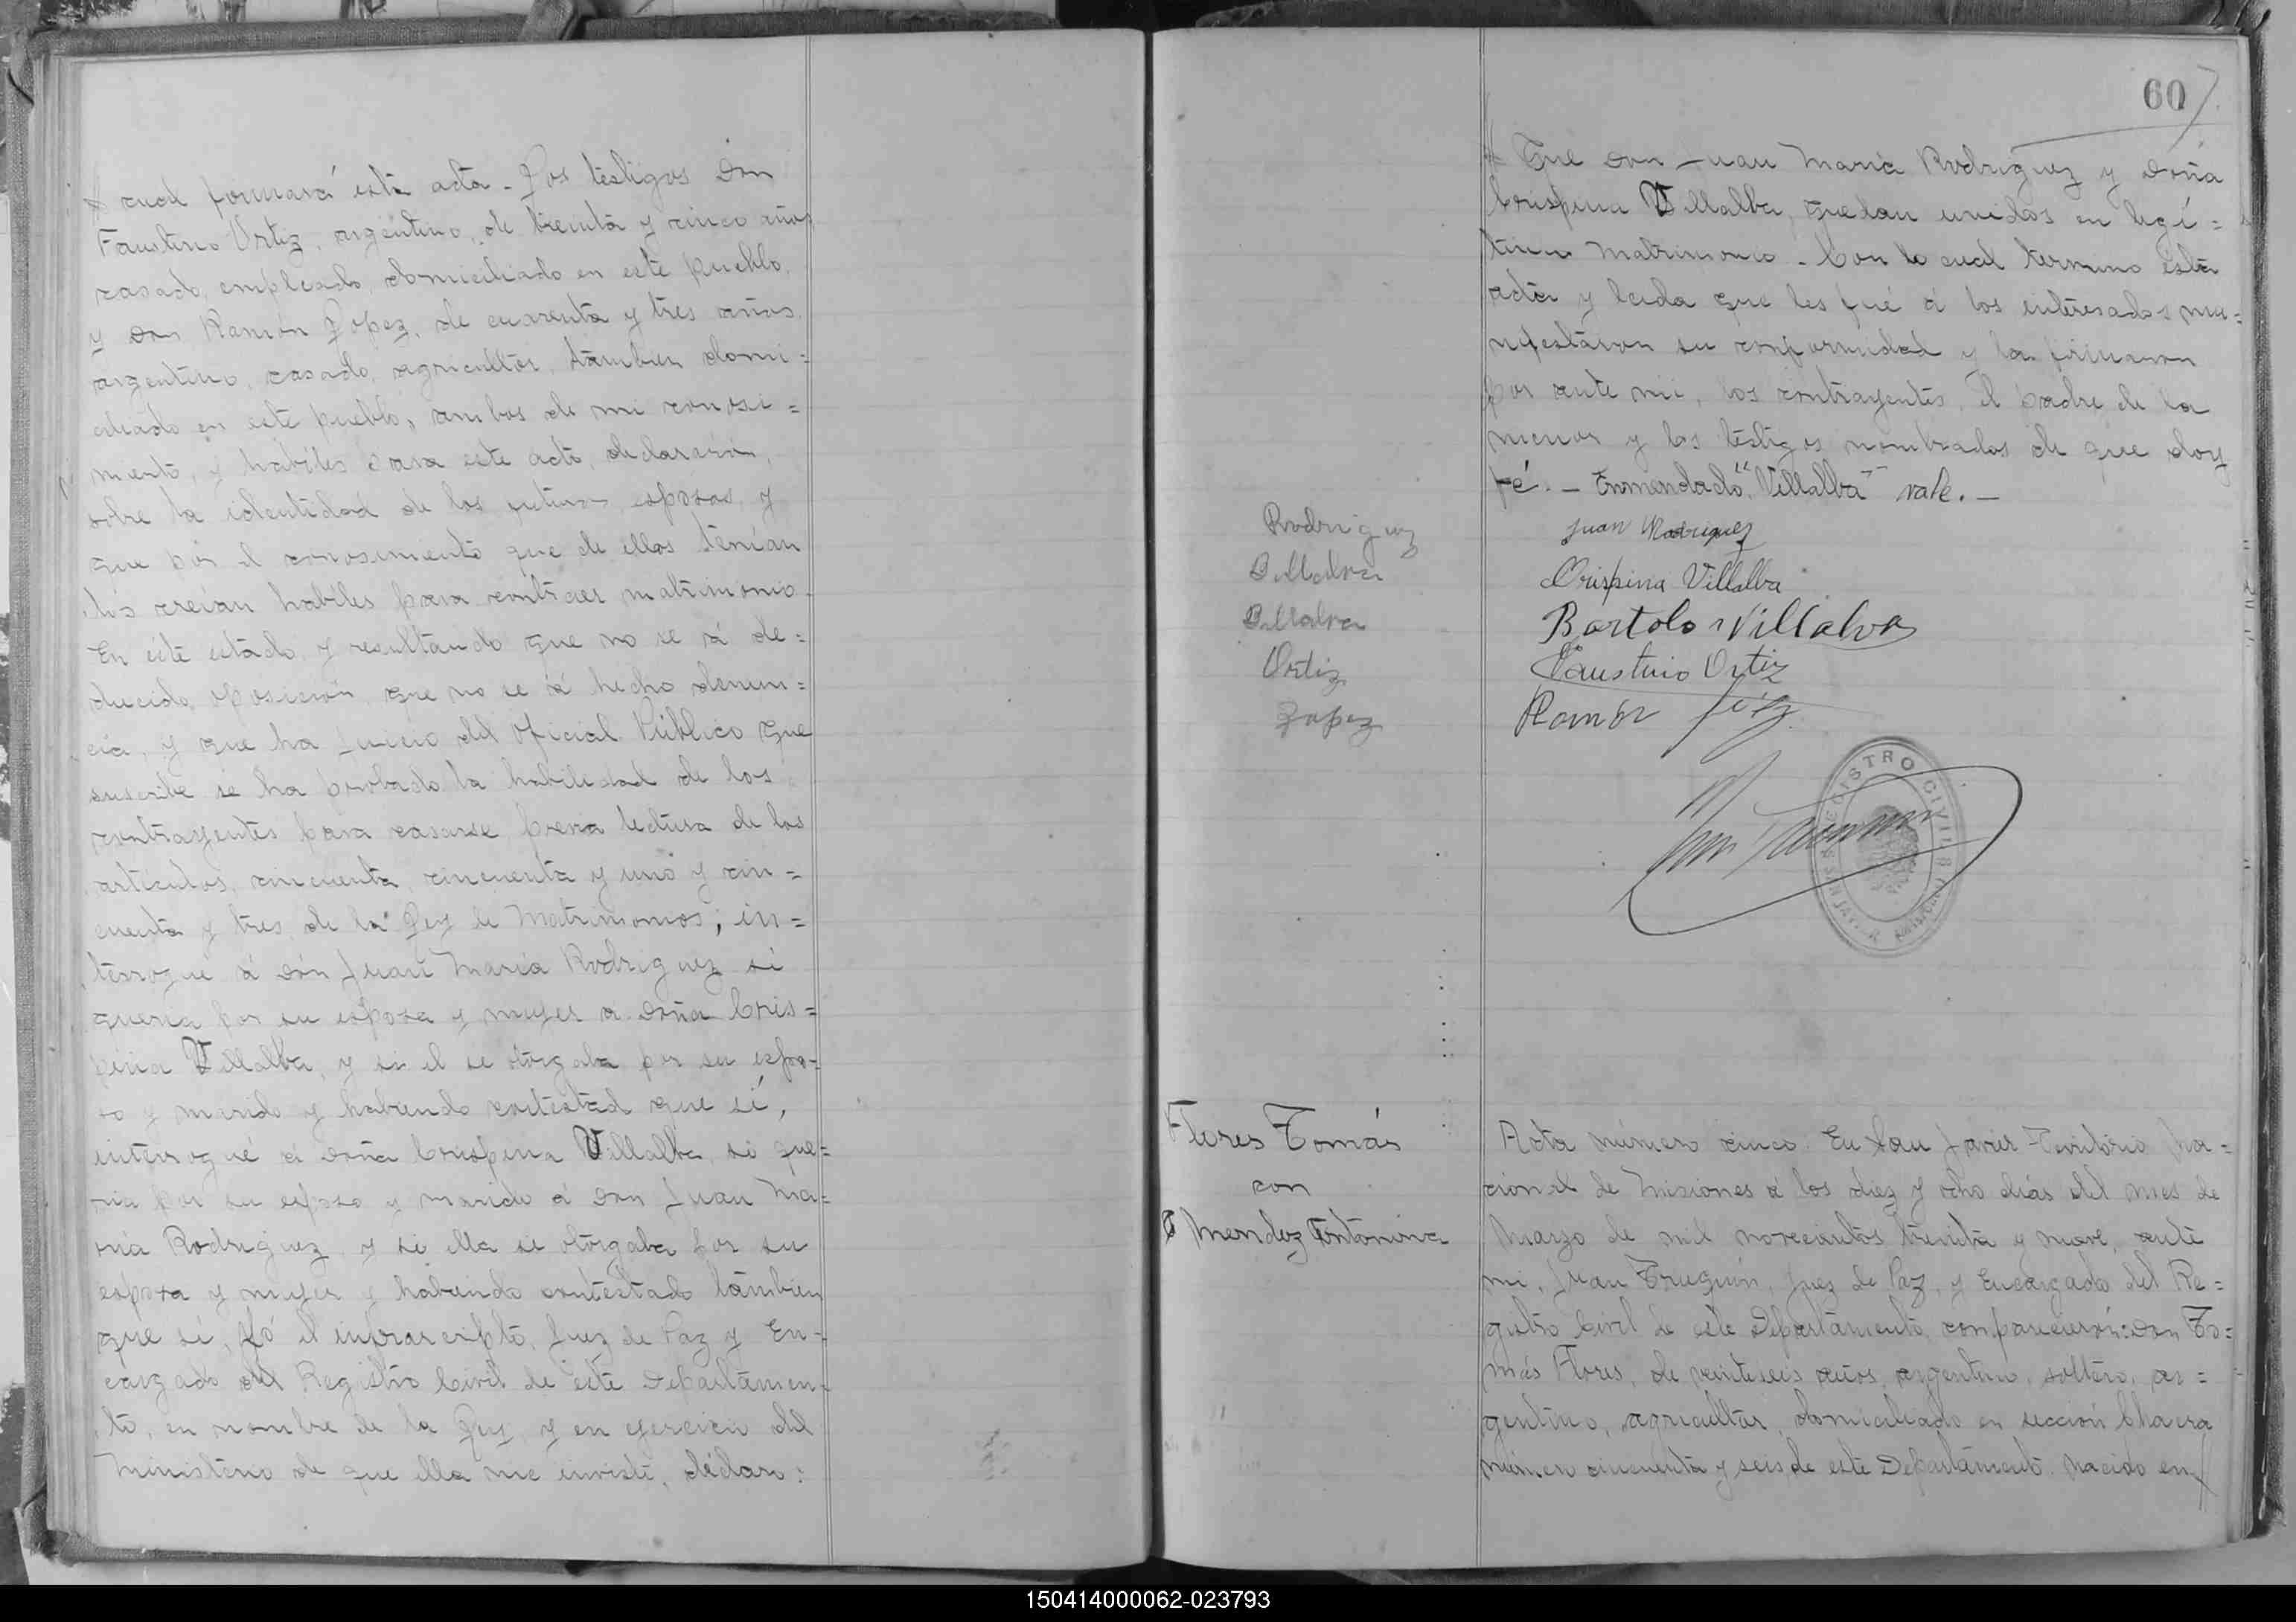 cual formará esta acta. Los testigos Don
Faustino Ortiz, argentino, de treinta y cinco años
casado, empleado, domiciliado en este pueblo,
y Don Ramón Lopez, de cuarenta y tres años,
argentino, casado, agricultor, támbien domi=
ciliado en este pueblo, ambos de mi conosi=
miento, y hábiles para este acto, declararón,
sobre la identidad de los futuros esposos, y
que por el conosimiento que de ellos tenían
los creían habiles para contraer matrimonio.
En este estado, y resultando que no se á de=
ducido oposición, que no se á hecho denun=
cia, y que ha juicio del Oficial Público que
suscribe se ha probado la habilidad de los
contrayentes para casarse, previa lectura de los
artículos, cincuenta, cincuenta y uno y cin=
cuenta y tres de la Ley de Matrimonios; in=
terrogué á Dón Juan María Rodriguez si
quería por su esposa y mujer a Doña Cris=
pina Villalba, y si el se otorgaba por su espo=
so y marido y habiendo contestad que sí,
interrogué á Doña Crispina Villalba, si que=
ria por su esposo y marido á Don Juan Ma=
ría Rodriguez, y si ella se otorgaba por su
esposa y mujer y habiendo contestado támbien
que sí, Yó el infrascripto, Juez de Paz y En=
cargado del Registro Civil de este Departamen=
to, en nombre de la Ley, y en ejercicio del
Ministerio de que ella me inviste, declaro:
60
Que Don Juan María Rodriguez y Doña
Crispina Villalba, quedan unidos en legí=
timo Matrimonio. Con lo cual termino esta
acta y leida que les fué á los interesados ma=
nifestaron su conformidad y la firmaron
por ante mi, los contrayentes, el padre de la
menor y los testigos nombrados de que doy
fé. — Enmendado "Villalba" vale. —
Rodriguez
Billalva
Billalva
Ortiz
Lopez
Juan Rodriguez
Crispina Villalba
Bartolo Villalva
Faustino Ortiz
Ramón
REGISTRO CIVIL
SAN JAVIER
Flores Tomás
con
Mendez Antonina
Acta número cinco. En San Javier Territorio Na=
cional de Misiones á los diez y ocho días del mes de
Marzo de mil novecientos treinta y nueve, ante
mi, Juan Truguin, Juez de Paz, y Encargado del Re=
gistro Civil de este Departamento, comparecierón: Don To=
más Flores, de veinteseis años, argentino, soltero, ar=
gentino, agricultor, domiciliado en sección Chacra
número cincuenta y seis de este Departamento. Nacido en
150414000062-023793